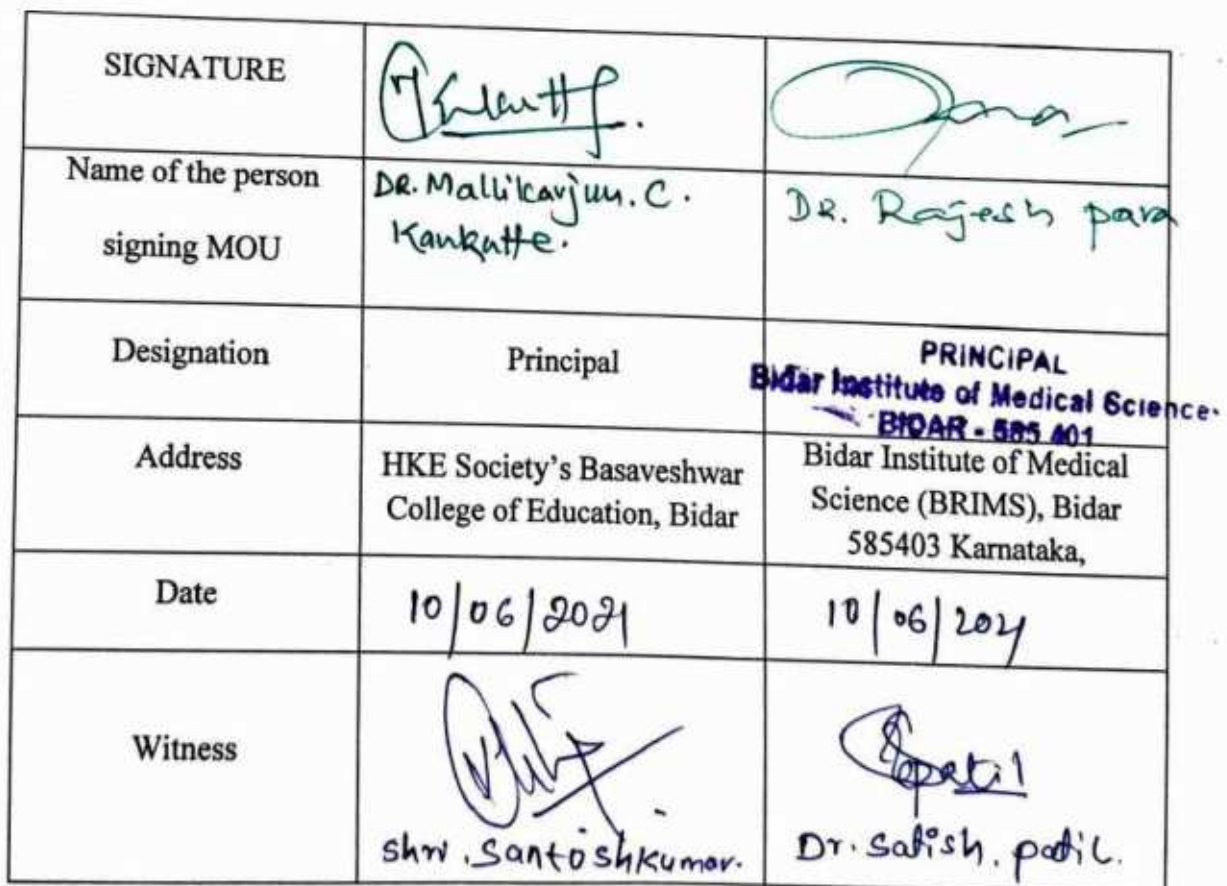 SIGNATURE
Name of the person
signing MOU
DR. Mallikarjun. C.
Kankatte.
DR. Rajesh para
Designation
Principal
PRINCIPAL
Bidar Institute of Medical Science.
BIDAR - 585 401
Address
HKE Society's Basaveshwar
College of Education, Bidar
Bidar Institute of Medical
Science (BRIMS), Bidar
585403 Karnataka,
Date
10/06/2021
10/06/2021
Witness
Shri. Santoshkumar.
Spatil
Dr. Satish. patil.